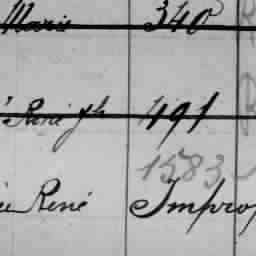 Marie 340
René fh 491
1583
René Impro